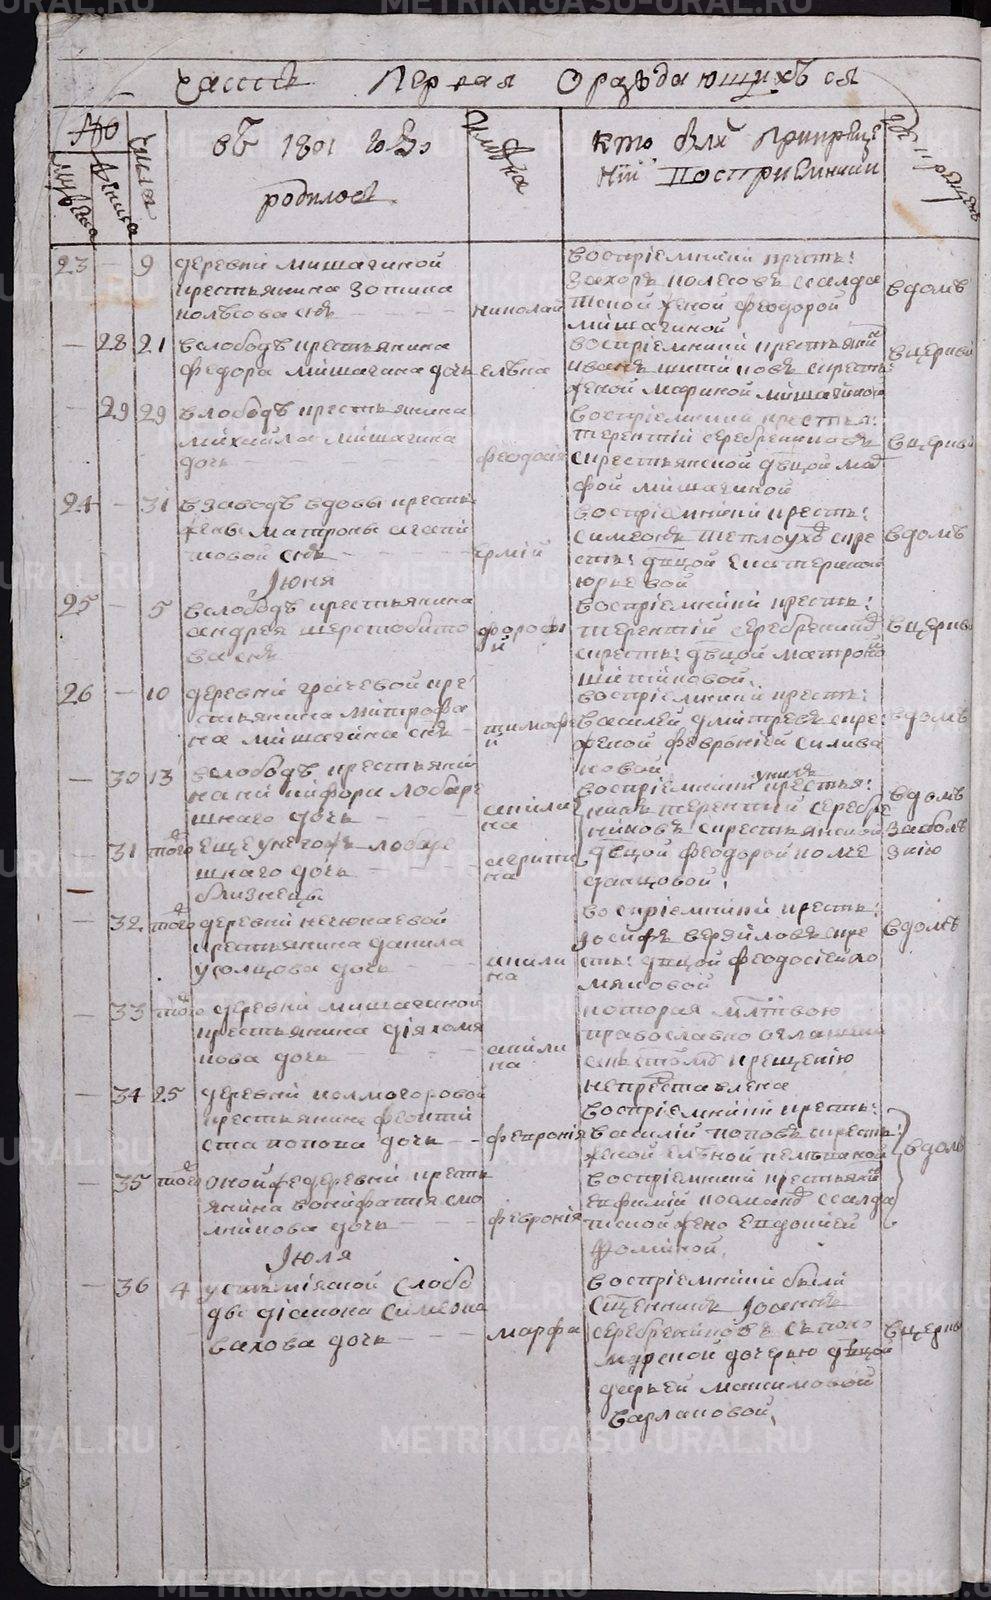 METRIKI.GASO-URAL.RU
Часть Первая О раждающихъся
№
мужеска
женска
числа
въ 1801 году
родилося
имяна
кто былъ При креще
нїи Восприемники
гдѣ крещенъ
23 — 9 деревни мишагиной
крестьянина Зотика
колѣсова сн҃ъ
николай
воспрїемники кресть:
Захоръ колесовъ ссалда
тской женой Феодорой
мишагиной
в домѣ
— 28 21 в слободѣ крестьянина
Федора мишагина дочь
елѣна
воспрїемники крестьянинъ
иванъ шитиковъ с кресть:
женой мариной мишагиной
в церкви
— 29 29 в слободѣ крестьянина
михаила мишагина
дочь
феодосїя
воспрїемники крестья:
терентїй серебрениковъ
с крестьянской дѣвцой мар
фой мишагиной
в церкви
24 — 31 в заводѣ вдовы кресть:
жены матроны агапи
товой сн҃ъ
ермїй
воспрїемники кресть:
симеонъ теплоуховъ с кре
сть: дѣвцой екатериной
юрьевой
в домѣ
Июня
25 — 5 в слободѣ крестьянина
андрея шерстобито
ва сн҃ъ
дорофѣ
й
воспрїемники кресть:
терентїй серебрениковъ
с кресть: дѣвцой матроной
шитиковой
в церкви
26 — 10 деревни грачевой кре
стьянина митрофа
на мишагина сн҃ъ
тимофе
й
воспрїемники кресть:
василей дмитревъ с кре:
женой февронїей силива
новой
в домѣ
— 30 13 в слободѣ крестьяни
на никифора лобаре
шнаго дочь
акили
на
воспрїемники крестья:
никъ терентий серебре
никовъ с крестьянской
дѣвцой феодорой коме
данцовой
в домѣ
за болѣ
знїю
— 31 того еще у него ж лобаре
шнаго дочь
близнецы
агрипи
на
— 32 того деревни нечкнаевой
крестьянина данила
усолцова дочь
акили
на
воспрїемники кресть:
Iосифъ вераиловъ с кре
сть: дѣвцой феодосїей по
мяковой
в домѣ
— 33 того деревни мишагиной
крестьянина
нова дочь
акили
на
которая м҃лтвою
православно
ко крещенїю
непреставлена
— 34 25 деревни колмогоровой
крестьянина феокти
ста попова дочь
февронїя
воспрїемники кресть:
василїй поповъ с кресть:
женой еленой пелевиной
в домѣ
— 35 того оной же деревни кресть
янина вонифатия смо
лникова дочь
февронїя
воспрїемники крестьянинъ
ефимїй ссалда
тской жено Евдокїей
Фоминой
Июля
— 36 4 устьмїаской слобо
ды дїакона симеона
вахова дочь
марфа
воспрїемники были
сщ҃енникъ Iоаннъ
серебрениковъ с поно
марской дочерью дѣвцой
дарьей максимовой
варлаковой
в церкви